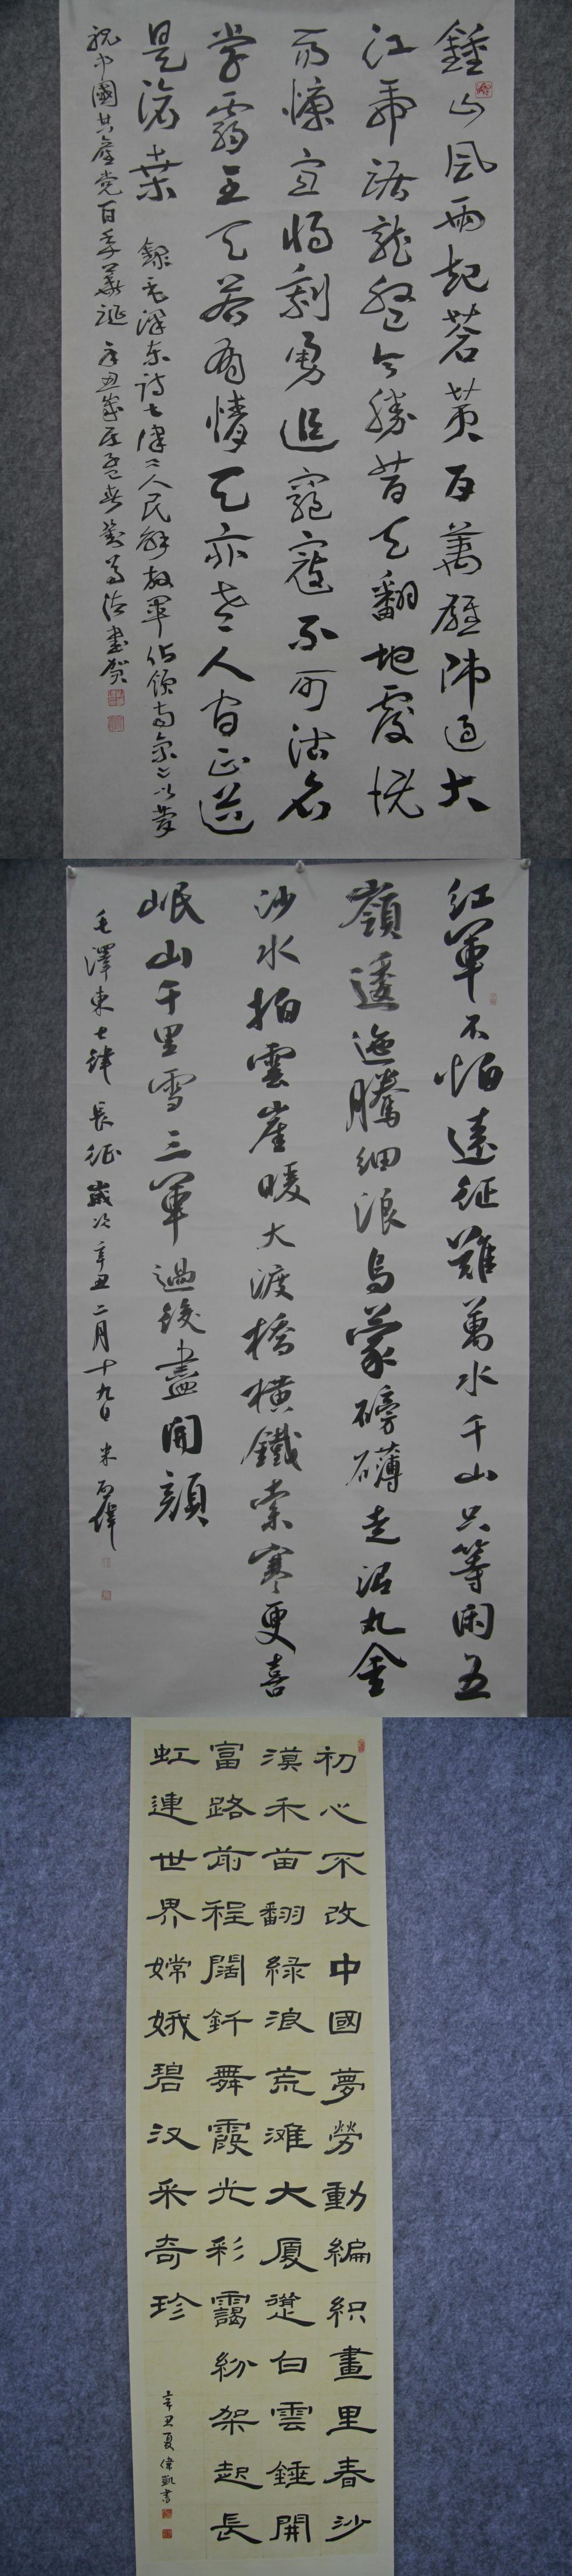 鍾山風雨起蒼黄百萬雄师過大
江虎踞龍盤今勝昔天翻地覆慨
而慷宜将剩勇追窮寇不可沽名
学霸王天若有情天亦老人间正道
是滄桑 錄毛澤东詩七律人民解放軍佔領南京以
祝中國共產党百年華誕 辛丑歲 書賀
紅軍不怕遠征難萬水千山只等閑五
嶺逶迤騰細浪烏蒙磅礴走泥丸金
沙水拍雲崖暖大渡橋横鐵索寒更喜
岷山千里雪三軍過後盡開顔
毛澤東七律 長征 歲次辛丑二月十九日 米 偉
初心不改中國夢勞動編织畫里春沙
漠禾苗翻緑浪荒滩大厦矗白雲錘開
富路前程闊釺舞霞光彩靄紛架起長
虹連世界嫦娥碧汉采奇珍
辛丑夏偉凱書